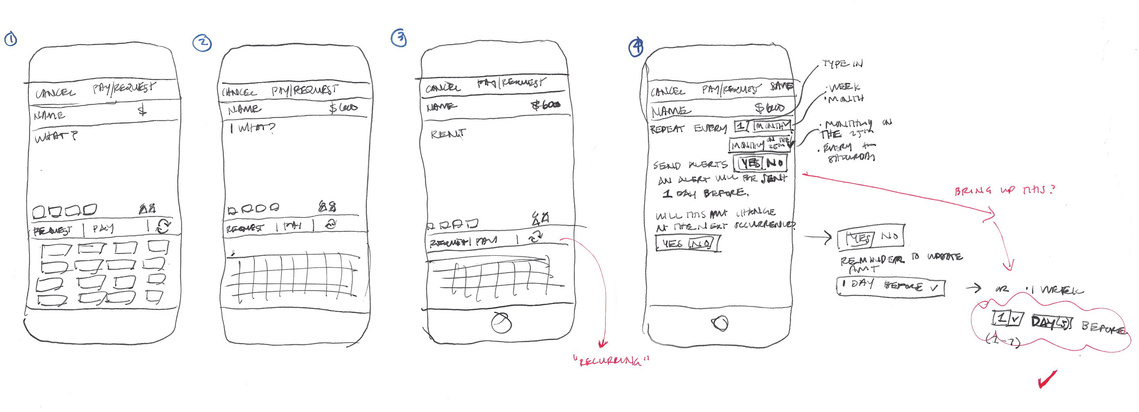 1
CANCEL PAY/REQUEST
NAME $
WHAT?
REQUEST | PAY |
2
CANCEL PAY/REQUEST
NAME $600
WHAT?
REQUEST | PAY |
3
CANCEL PAY/REQUEST
NAME $600
RENT
REQUEST | PAY |
"RECURRING"
4
CANCEL PAY/REQUEST SAVE
NAME $600
REPEAT EVERY 1 MONTH
MONTHLY ON THE 25TH
SEND ALERTS YES NO
AN ALERT WILL BE SENT
1 DAY BEFORE.
WILL THIS AMT CHANGE
AT THE NEXT OCCURRENCE?
YES NO
TYPE IN
· WEEK
· MONTH
· MONTHLY ON
THE 25TH
· EVERY
SATURDAY
BRING UP THIS?
YES NO
REMINDER TO UPDATE
AMT
1 DAY BEFORE
OR · 1 WEEK
1 DAY(S) BEFORE
(1-7)